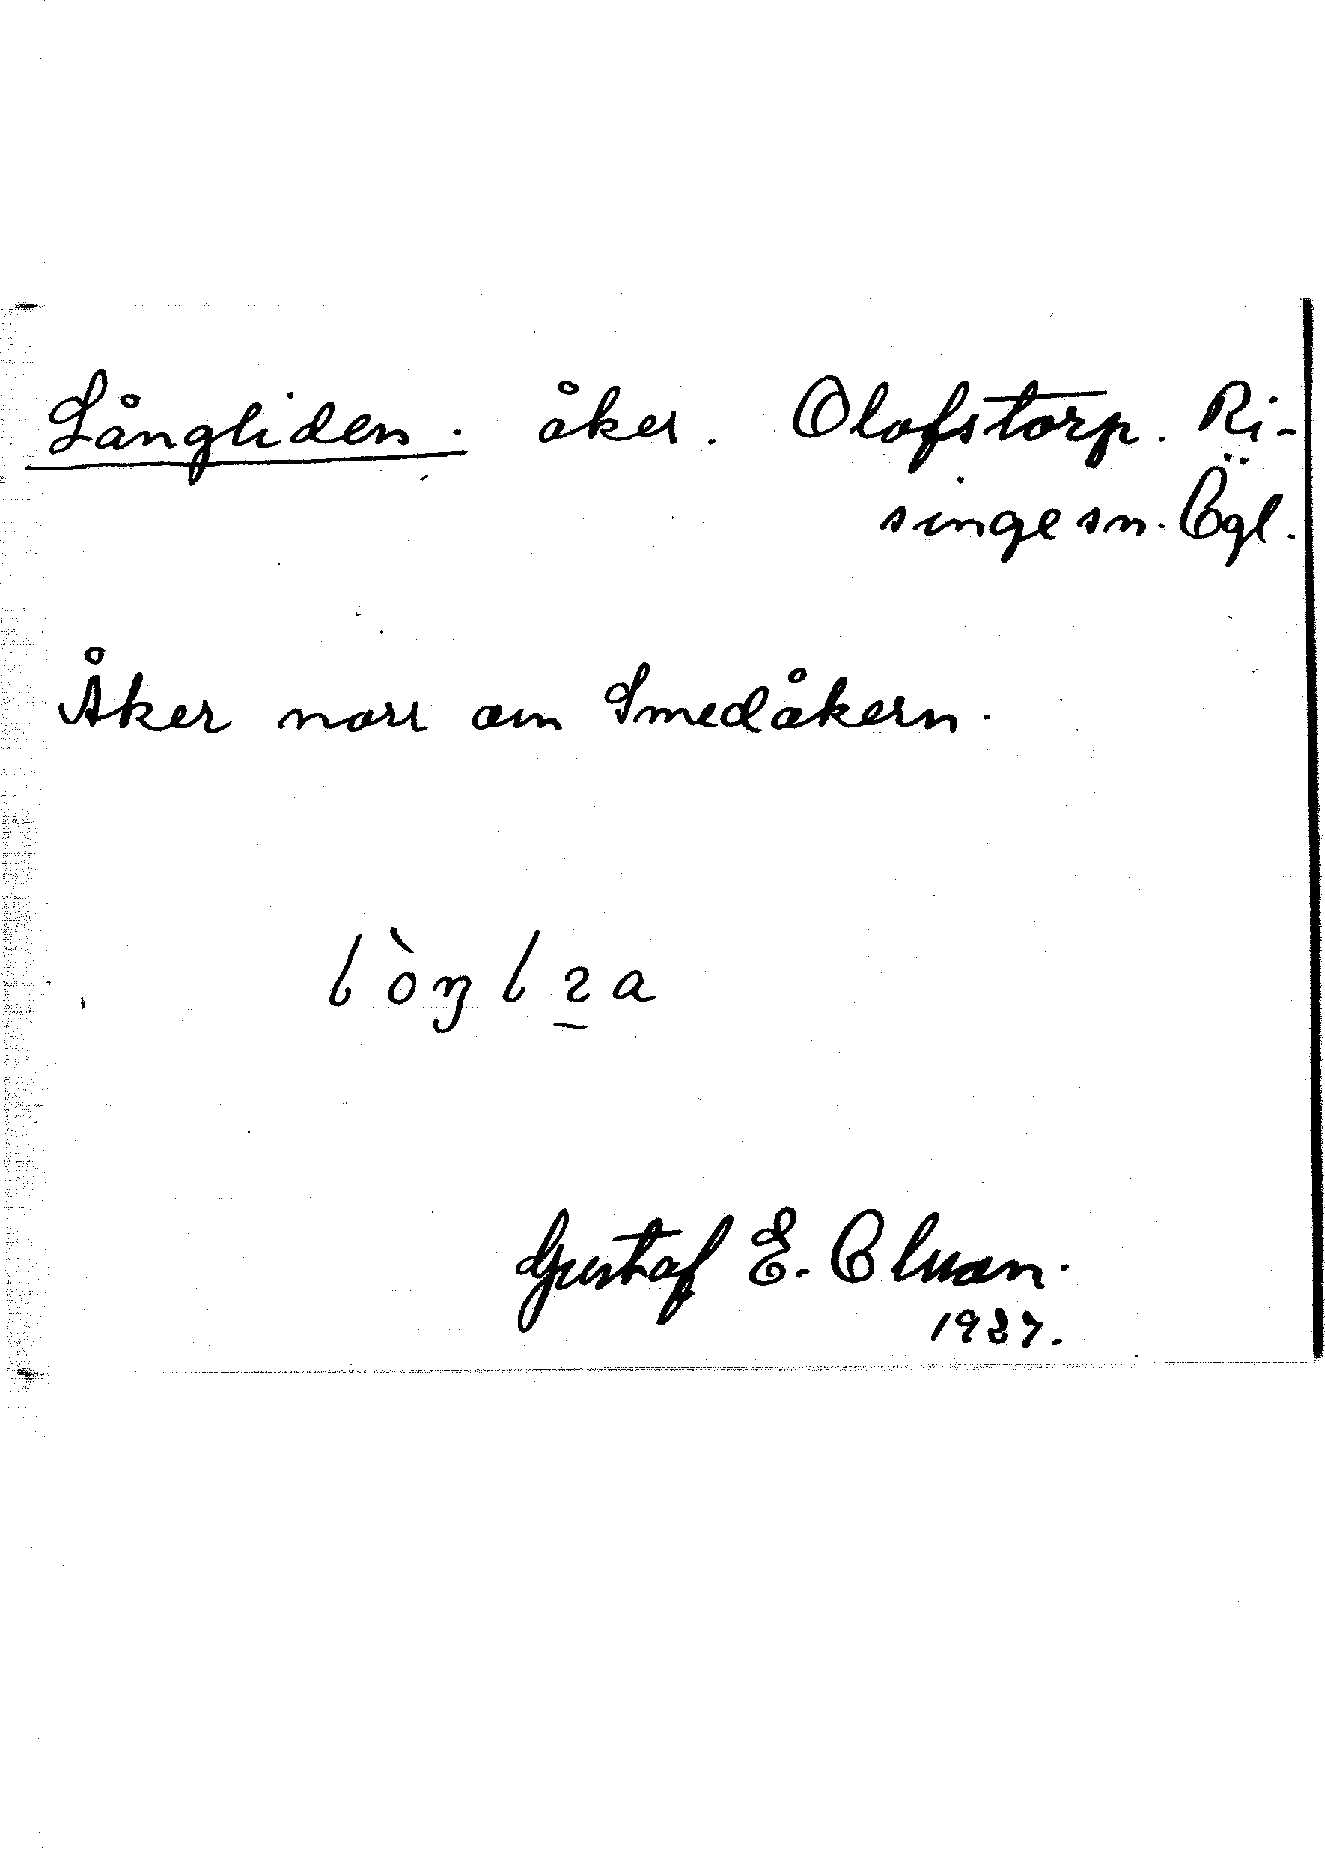 Långliden. åker. Olofstorp. Ri-
singe sn. Ögl.
Åker norr om Smedåkern.
Gustaf E.
1937.